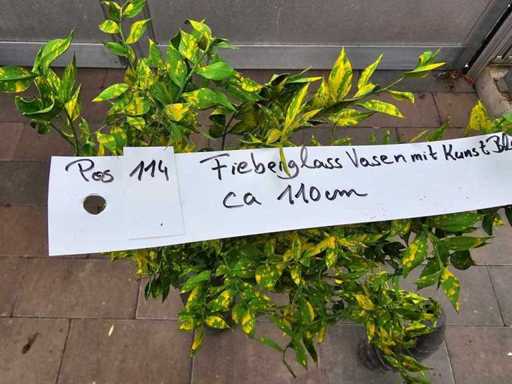 Pos 114 Fieberglass Vasen mit Kunst
ca 110cm